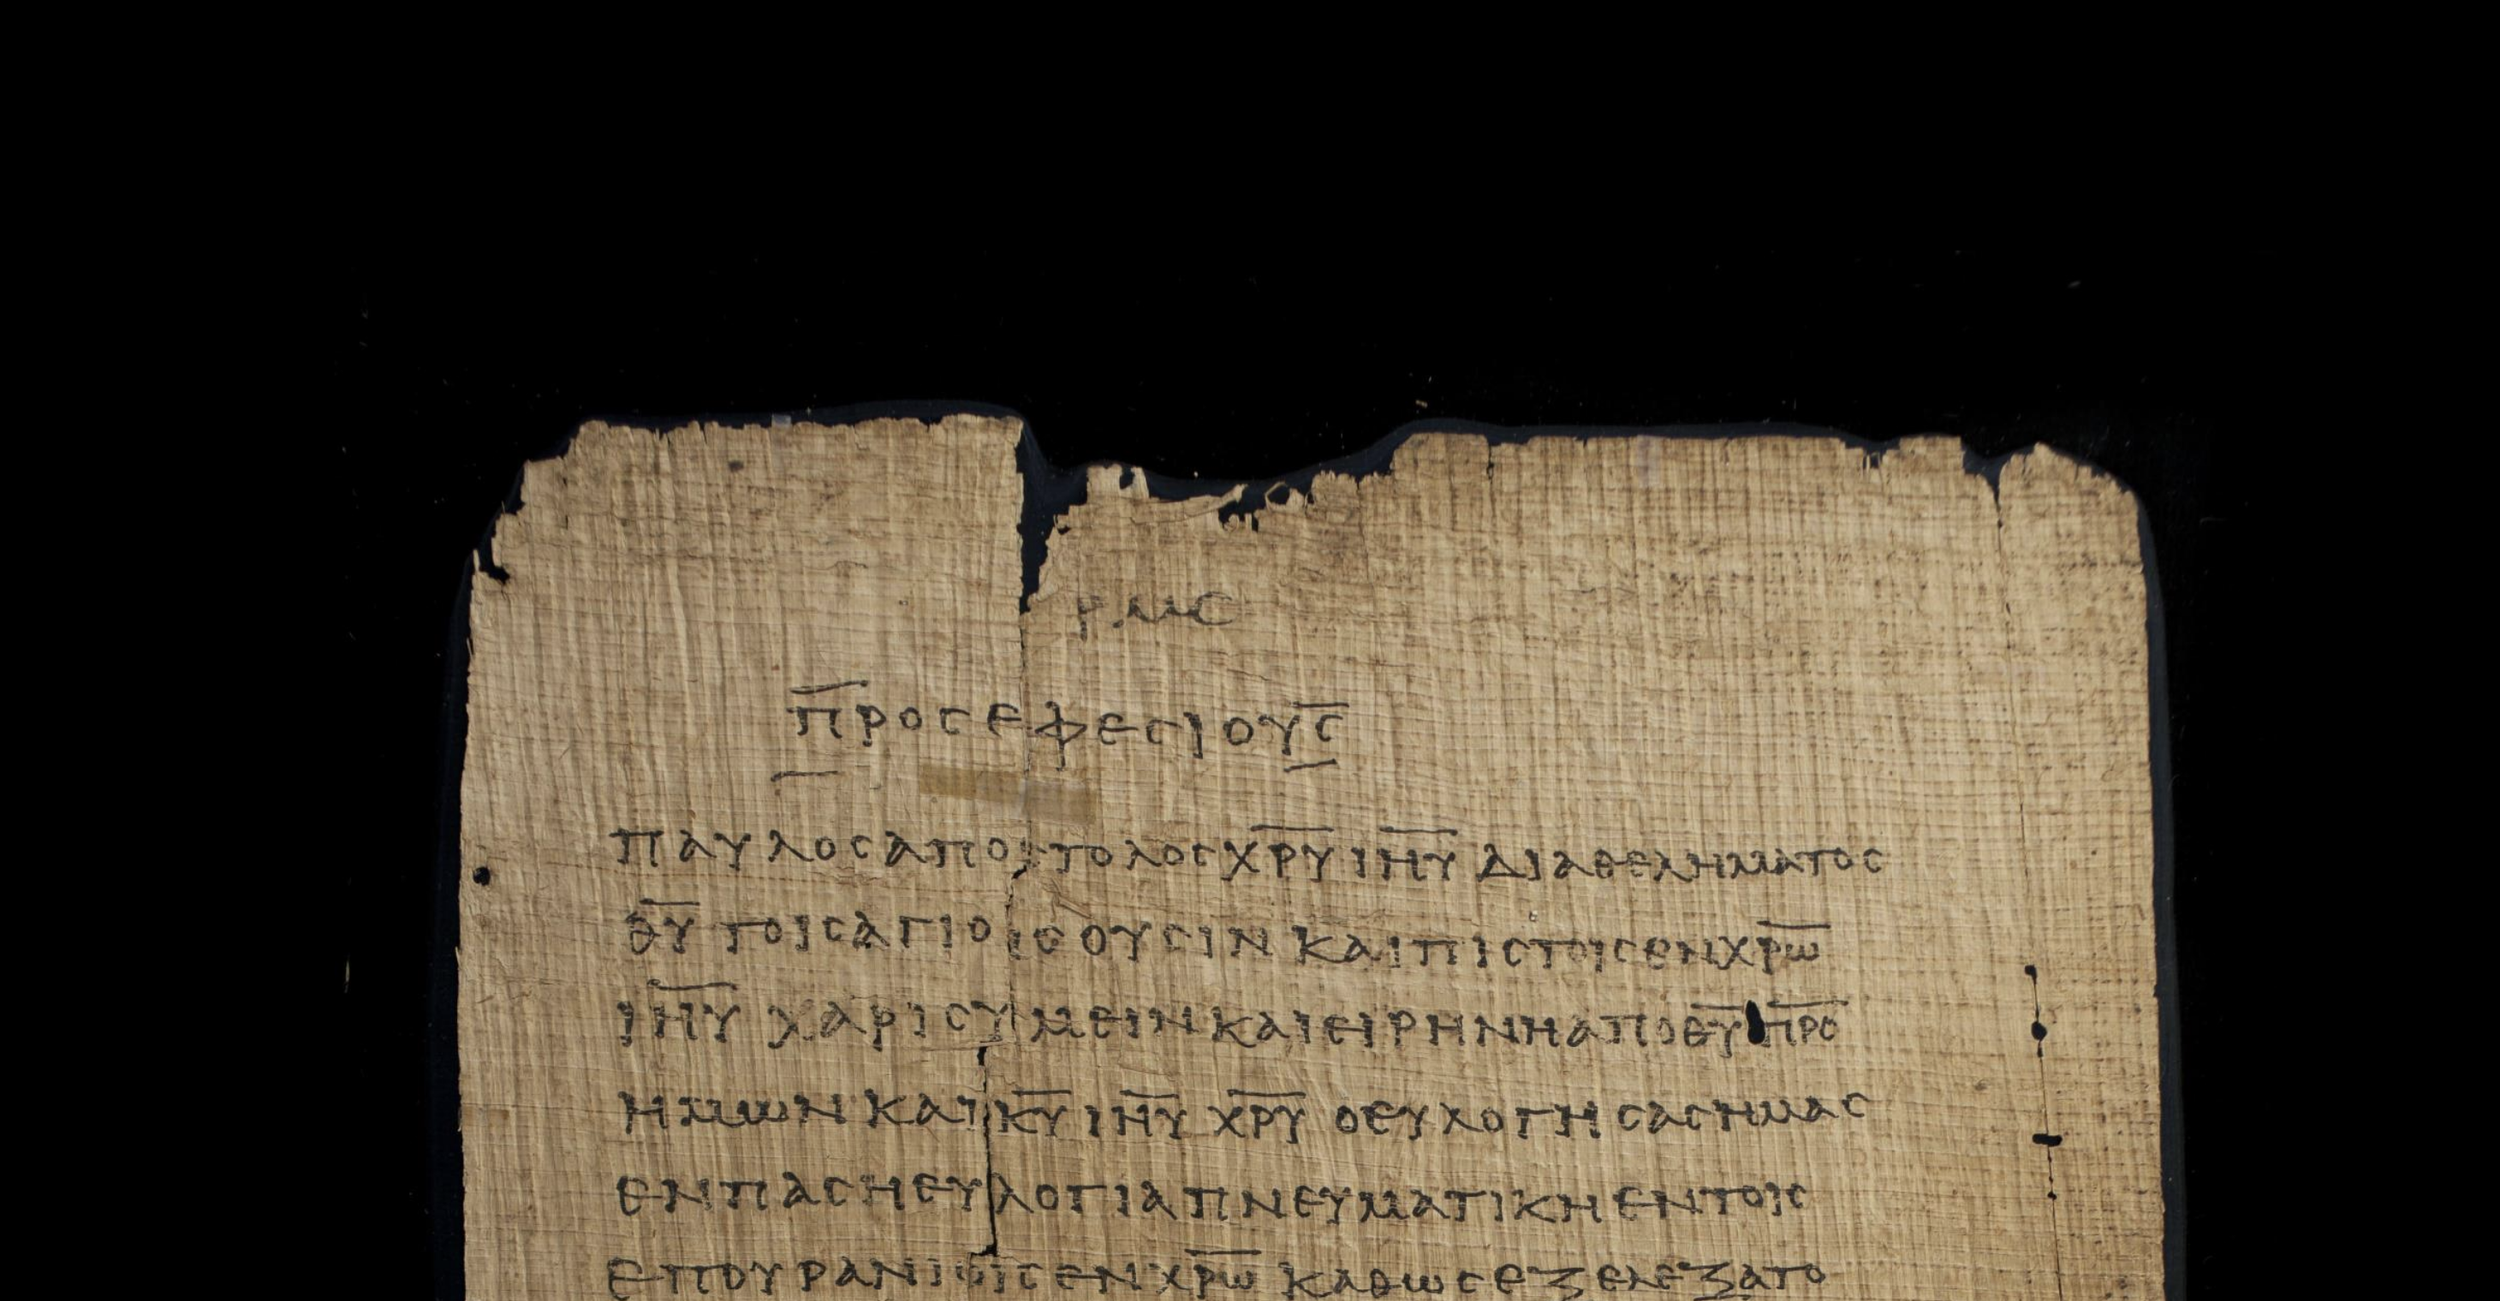 ΡΜϚ
ΠΡΟϹ ΕΦΕϹΙΟΥϹ
ΠΑΥΛΟϹ ΑΠΟϹΤΟΛΟϹ Χ̅Ρ̅Υ̅ Ι̅Η̅Υ̅ ΔΙΑ ΘΕΛΗΜΑΤΟϹ
Θ̅Υ̅ ΤΟΙϹ ΑΓΙΟΙϹ ΟΥϹΙΝ ΚΑΙ ΠΙϹΤΟΙϹ ΕΝ Χ̅Ρ̅Ω̅
Ι̅Η̅Υ̅ ΧΑΡΙϹ ΥΜΕΙΝ ΚΑΙ ΕΙΡΗΝΗ ΑΠΟ Θ̅Υ̅ Π̅Ρ̅Ο̅
ΗΜΩΝ ΚΑΙ Κ̅Υ̅ Ι̅Η̅Υ̅ Χ̅Ρ̅Υ̅ Ο ΕΥΛΟΓΗϹΑϹ ΗΜΑϹ
ΕΝ ΠΑϹΗ ΕΥΛΟΓΙΑ ΠΝΕΥΜΑΤΙΚΗ ΕΝ ΤΟΙϹ
ΕΠΟΥΡΑΝΙΟΙϹ ΕΝ Χ̅Ρ̅Ω̅ ΚΑΘΩϹ ΕΞΕΛΕΞΑΤΟ